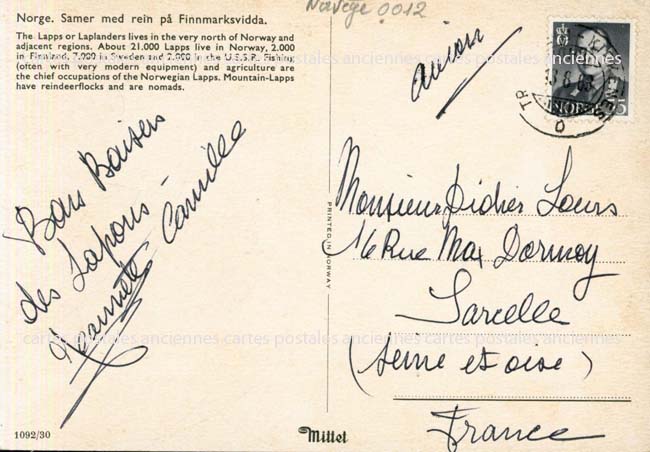 Norvège 0012
Norge. Samer med rein på Finnmarksvidda.
The Lapps or Laplanders lives in the very north of Norway and
adjacent regions. About 21.000 Lapps live in Norway, 2.000
in Finland, 7.000 in Sweden and 2.000 in the U.S.S.R. Fishing
(often with very modern equipment) and agriculture are
the chief occupations of the Norwegian Lapps. Mountain-Lapps
have reindeerflocks and are nomads.
Bons Baisers
des Lapons
Jeannette Camille
avion
NORGE
Monsieur Didier Lours
16 Rue Max Dormoy
Sarcelle
(Seine et oise)
France
PRINTED IN NORWAY
cartes postales anciennes cartes postales anciennes cartes postales anciennes
1092/30
Mittet